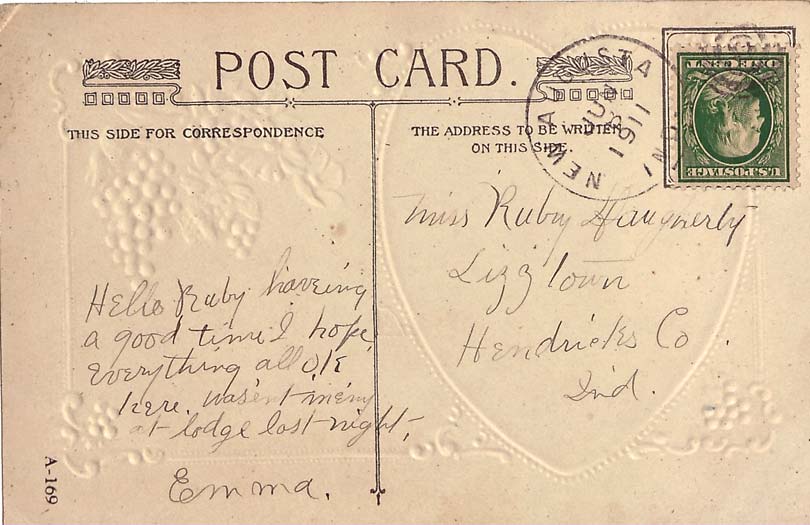 POST CARD.
THIS SIDE FOR CORRESPONDENCE
THE ADDRESS TO BE WRITTEN
ON THIS SIDE.
NEW AUGUSTA
JUN
1911
IND.
U.S. POSTAGE
ONE CENT
Miss Ruby Haugherty
Lizztown
Hendricks Co.
Ind.
Hello Ruby haveing
a good time I hope
everything all O.K
here. wasent meny
at lodge last night,
Emma.
A-169